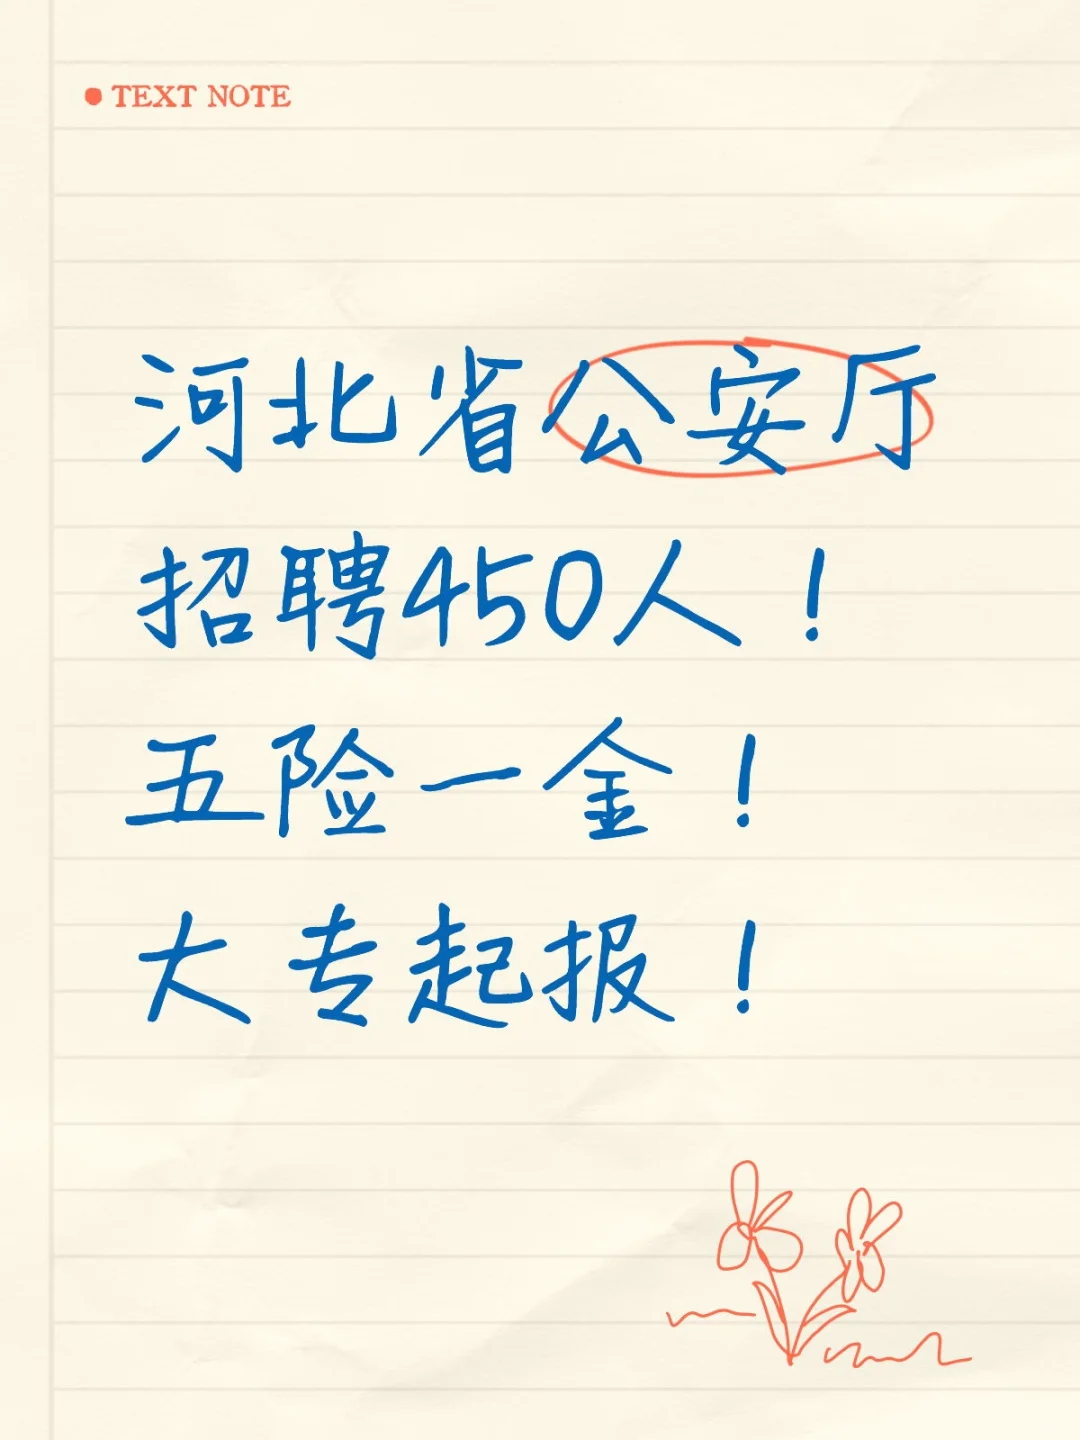 TEXT NOTE
河北省公安厅
招聘450人！
五险一金！
大专起报！